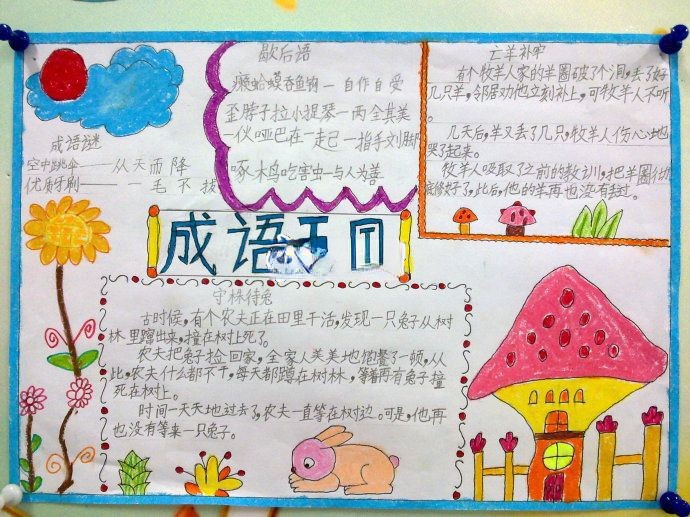 成语谜
空中跳伞——从天而降
优质牙刷——一毛不拔
歇后语
癞蛤蟆吞鱼钩—自作自受
歪脖子拉小提琴—两全其美
一伙哑巴在一走己—指手刘脚
啄木鸟吃害虫—与人为善
亡羊补牢
有个牧羊人家的羊圈破了个洞,丢了好
几只羊,邻居劝他立刻补上,可牧羊人不听
。
几天后,羊又丢了几只,牧羊人伤心地
哭了起来。
牧羊人吸取了之前的教训,把羊圈
修好了,此后,他的羊再也没有丢过。
成语
守株待兔
古时候,有个农夫正在田里干活,发现一只兔子从树
林里蹿出来,撞在树上死了。
农夫把兔子捡回家,全家人美美地饱餐了一顿,从
此,农夫什么都不干,每天都蹲在树林,等着再有兔子撞
死在树上。
时间一天天地过去了,农夫一直等在树边。可是,他再
也没有等来一只兔子。